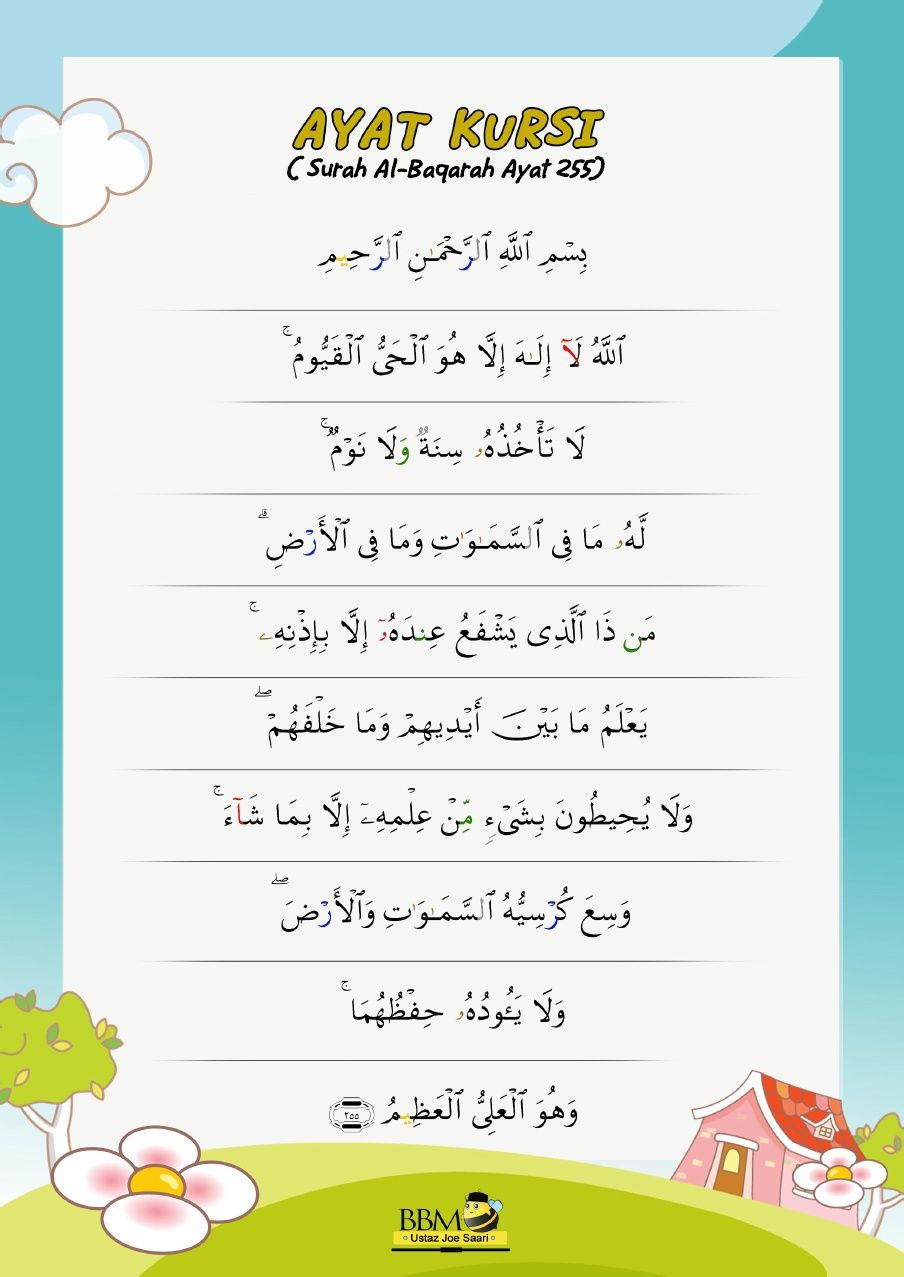 AYAT KURSI
( Surah Al-Baqarah Ayat 255)
بِسْمِ ٱللَّهِ ٱلرَّحْمَـٰنِ ٱلرَّحِيمِ
ٱللَّهُ لَآ إِلَـٰهَ إِلَّا هُوَ ٱلْحَىُّ ٱلْقَيُّومُ ۚ
لَا تَأْخُذُهُۥ سِنَةٌ وَلَا نَوْمٌ ۚ
لَّهُۥ مَا فِى ٱلسَّمَـٰوَٰتِ وَمَا فِى ٱلْأَرْضِ ۗ
مَن ذَا ٱلَّذِى يَشْفَعُ عِندَهُۥٓ إِلَّا بِإِذْنِهِۦ ۚ
يَعْلَمُ مَا بَيْنَ أَيْدِيهِمْ وَمَا خَلْفَهُمْ ۖ
وَلَا يُحِيطُونَ بِشَىْءٍ مِّنْ عِلْمِهِۦٓ إِلَّا بِمَا شَآءَ ۚ
وَسِعَ كُرْسِيُّهُ ٱلسَّمَـٰوَٰتِ وَٱلْأَرْضَ ۖ
وَلَا يَـُٔودُهُۥ حِفْظُهُمَا ۚ
وَهُوَ ٱلْعَلِىُّ ٱلْعَظِيمُ ٢٥٥
BBM
Ustaz Joe Saari